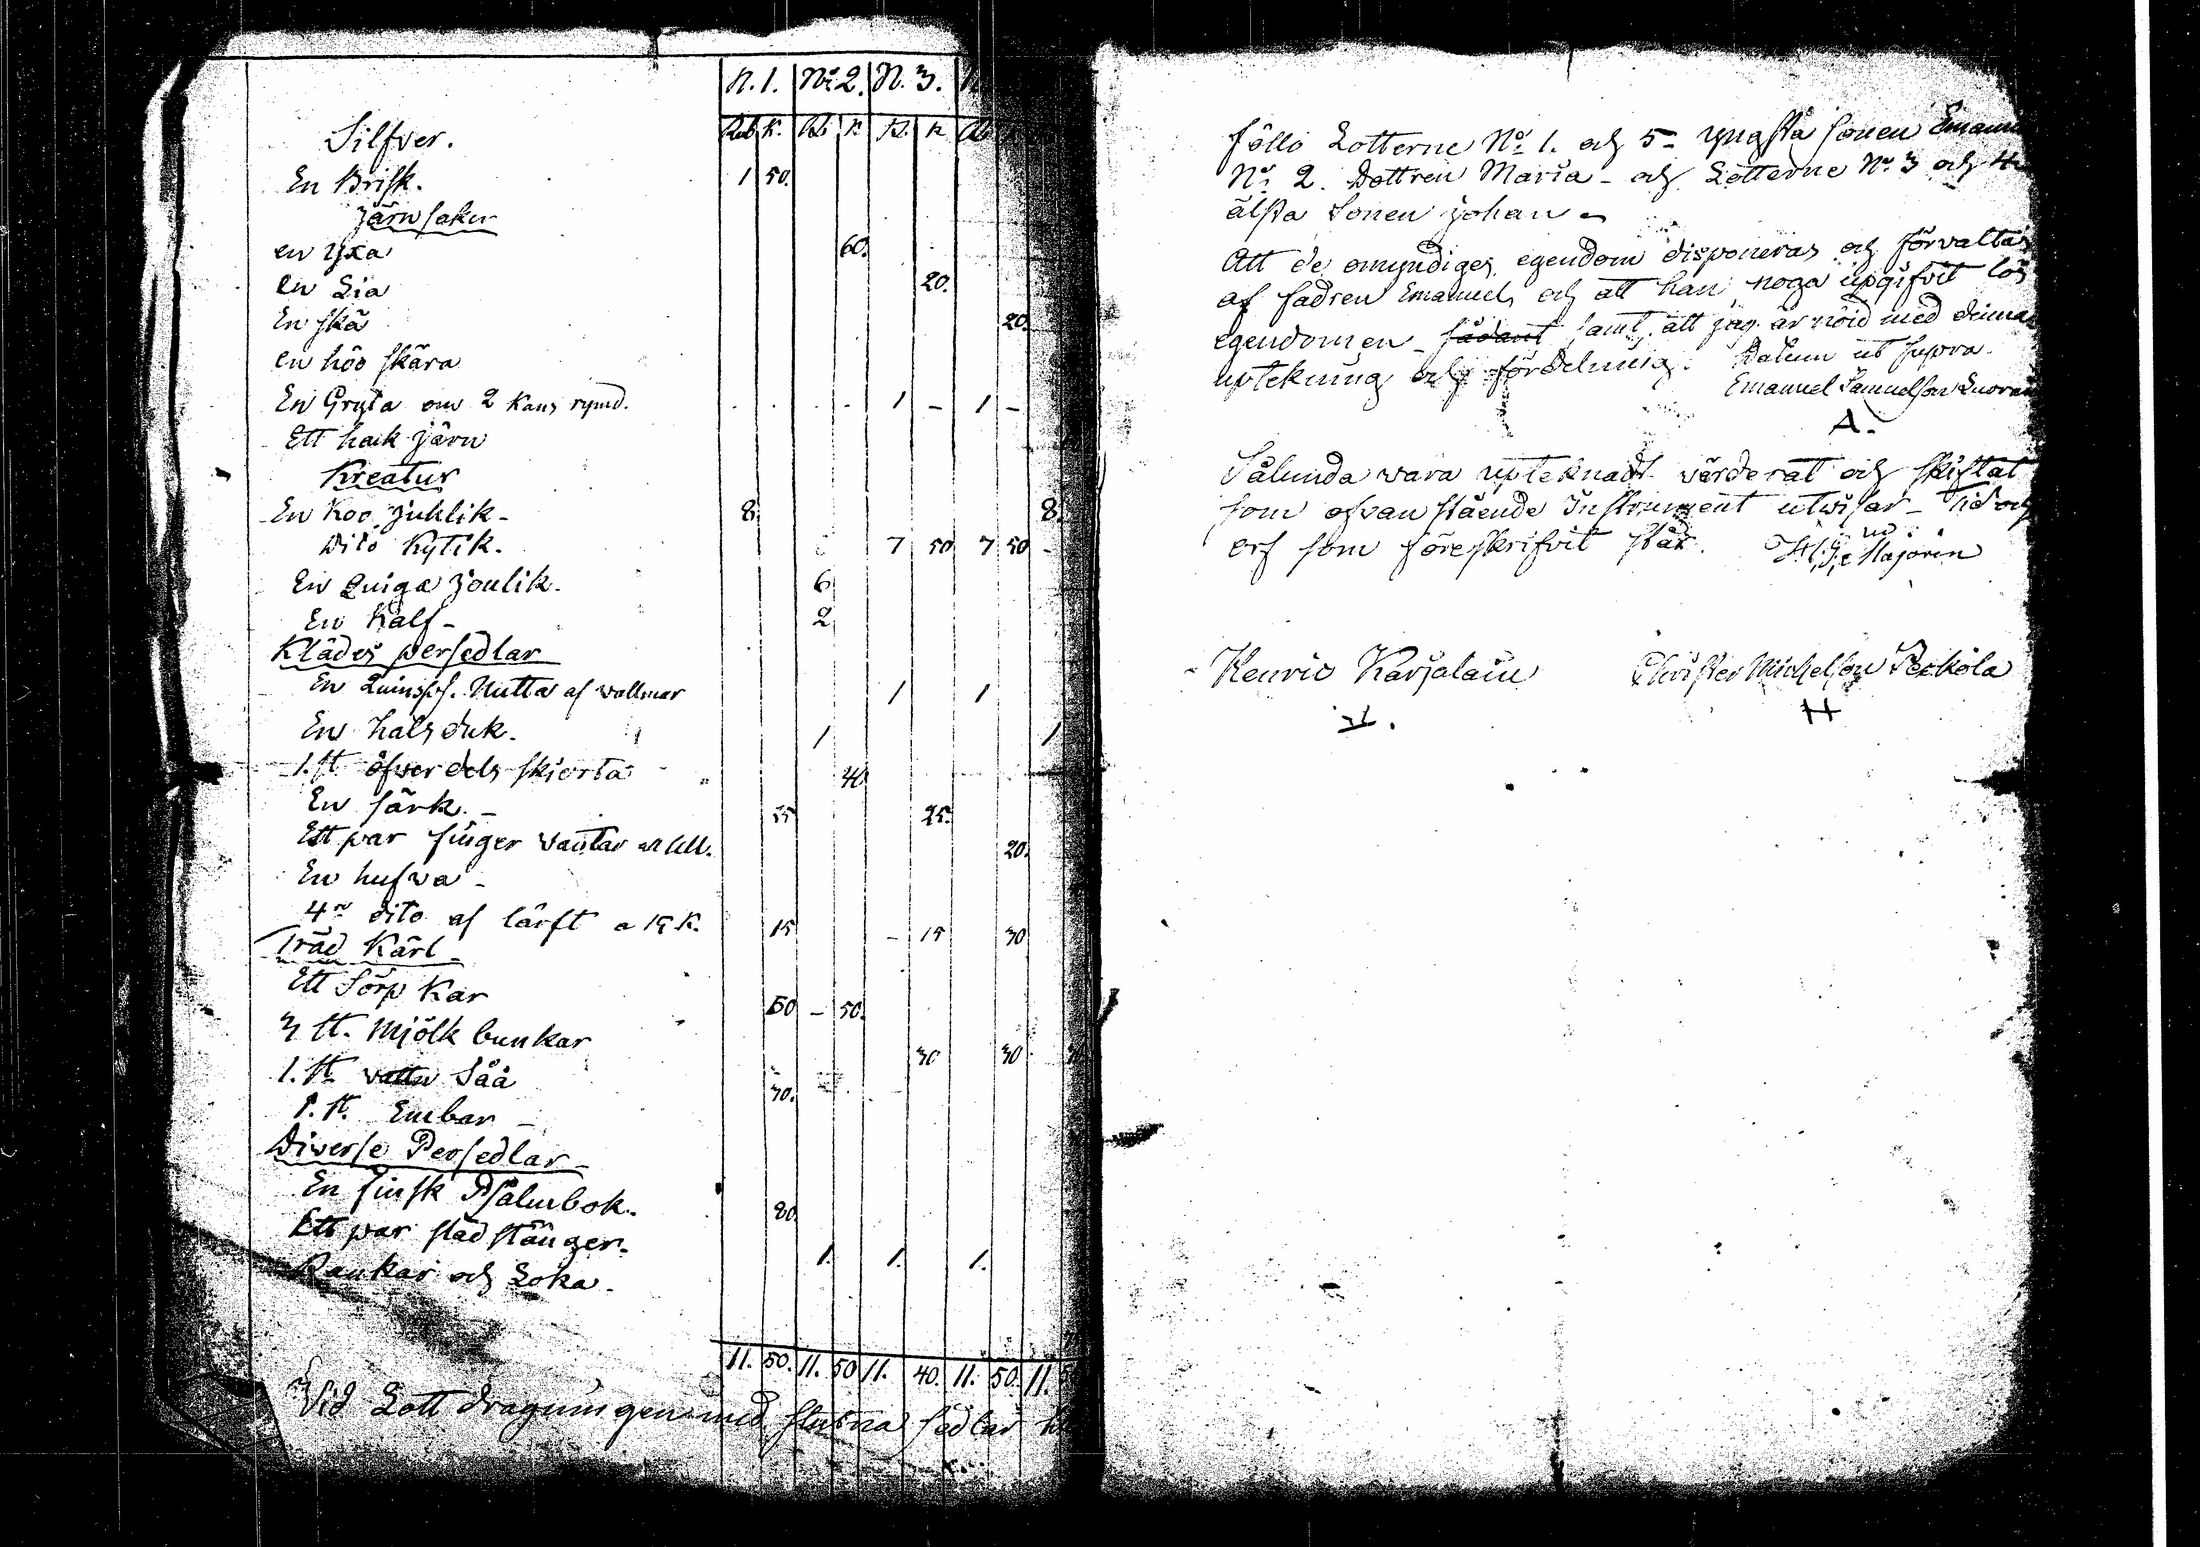 N. 1. No 2. N. 3. N
Rub K. Rb K R. K Rb
Silfver.
En Brisk. 1 50.
Järnsaker
en yxa 60.
en Lia 20.
En skä 20.
en höo skära
En Gryta om 2 Kans rymd. 1 - 1 -
Ett hack järn
Kreatur
En Koo Juhlik - 8. 8.
Dito Kytik. 7 50 7 50
En Quiga Joulik. 6
En Kalf - 2
Klädes persedlar
En Quinsps. Nutta af vallmar 1 1
En halsduk. 1 1
1. st öfverdels skiorta 40
En särk. - 25.
Ett par finger vantar af Ull. 20.
En hufva -
4ra dito af lärft a 15 K. 15 - 15 30
Träd Kärl -
Ett Sörp Kar 50 - 50.
3 st. Mjölk bunkar 30 30
1. st vattu Såå 70.
1. st. Embar -
Diverse Persedlar -
En finsk Psalmbok. 80
Ett par städ stänger. 1. 1. 1.
Rankar och Loka.
11. 50. 11. 50 11. 40. 11. 50. 11.
Vid Lott dragningen med slutna sedlar
föllo Lotterne No 1. och 5 - yngsta sonen Emanu
No 2. Dottren Maria - och Lotterne No 3 och 4
älsta Sonen Johan -
Att de omyndiges egendom disponeras och förvaltas
af fadren Emanuel, och att han noga upgifvit lös
egendomen - sådant samt att jag är nöid med denna
uptekning och fördelning. Datum ut supra.
Emanuel Samuelson Suoran
A.
Sålunda vara upteknadt värderat och skiftat
som ofvanstående Instrument utvisar - Tid och
ort som föreskrifvit står.
Henric Karjalain Christer Michelson Peckola
H